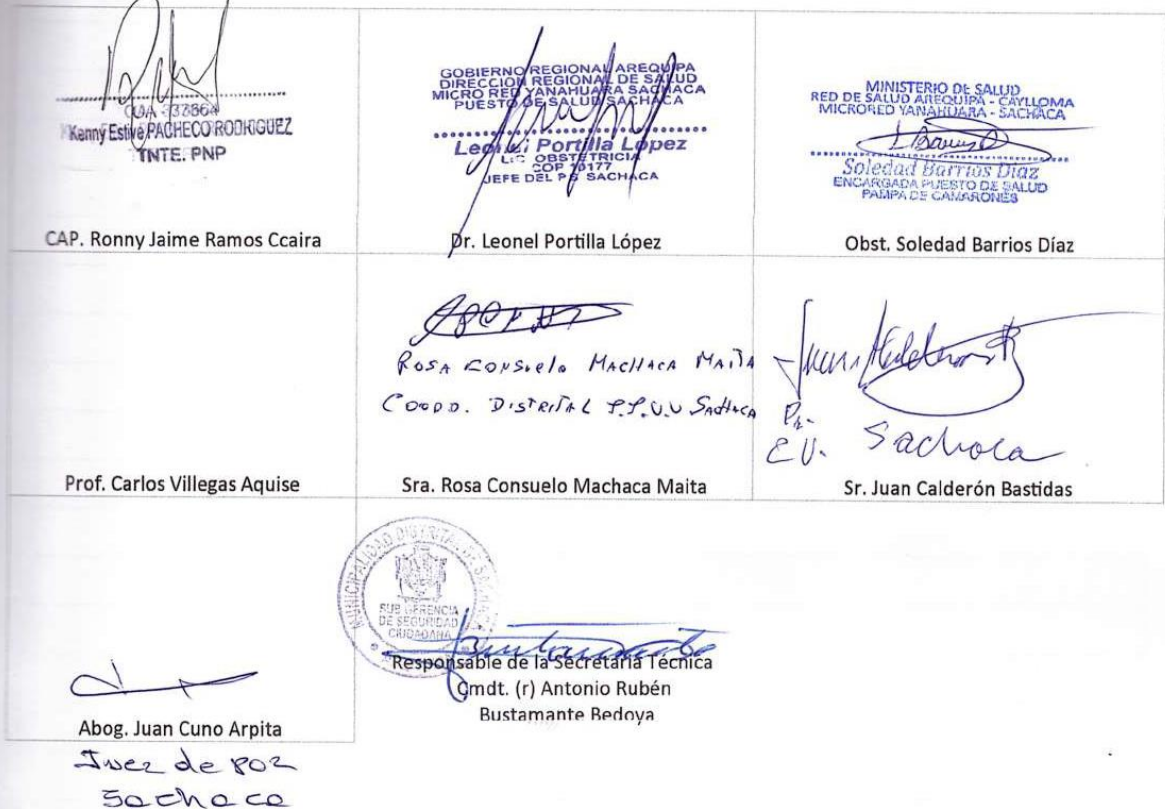 Kenny Estive PACHECO RODRIGUEZ
TNTE. PNP
CAP. Ronny Jaime Ramos Ccaira
GOBIERNO REGIONAL AREQUIPA
DIRECCIÓN REGIONAL DE SALUD
MICRO RED YANAHUARA SACHACA
PUESTO DE SALUD SACHACA
Portilla López
LIC. OBSTETRICIA
JEFE DEL PS SACHACA
Dr. Leonel Portilla López
MINISTERIO DE SALUD
RED DE SALUD AREQUIPA - CAYLLOMA
MICRORED YANAHUARA - SACHACA
Soledad Barrios Díaz
ENCARGADA PUESTO DE SALUD
PAMPA DE CAMARONES
Obst. Soledad Barrios Díaz
Prof. Carlos Villegas Aquise
ROSA CONSUELO MACHACA MAITA
COORD. DISTRITAL JJ.VV SACHACA
Sra. Rosa Consuelo Machaca Maita
Sachaca
Sr. Juan Calderón Bastidas
Abog. Juan Cuno Arpita
Juez de Paz
Sachaca
MUNICIPALIDAD DISTRITAL DE SACHACA
SUB GERENCIA
DE SEGURIDAD
CIUDADANA
Responsable de la Secretaría Técnica
Cmdt. (r) Antonio Rubén
Bustamante Bedoya